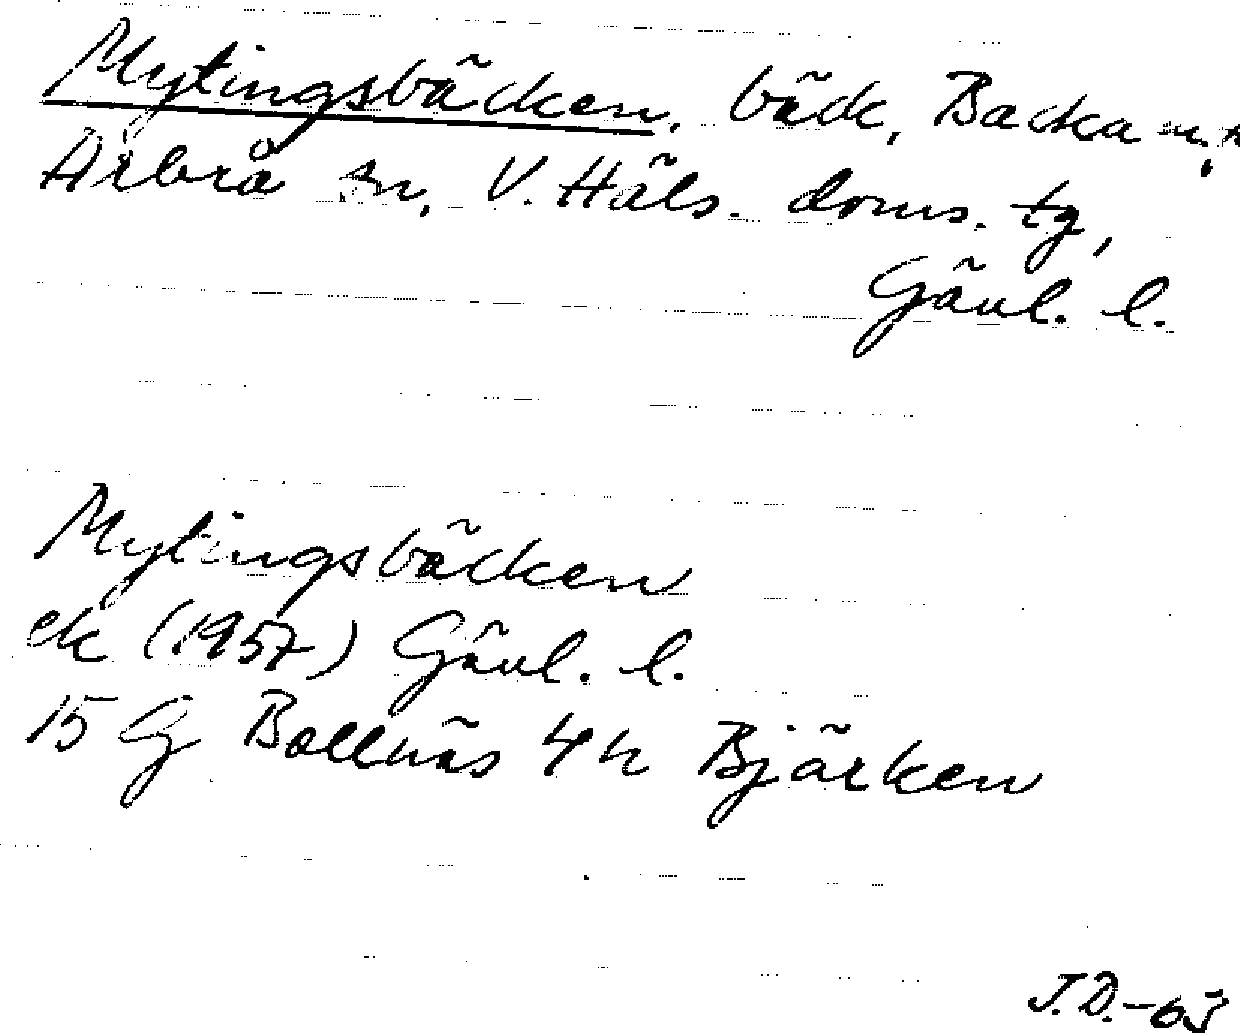 Mytingsbäcken, bäck, Backa m.fl.
Arbrå sn, V. Häls. doms. tg,
Gävl. l.
Mytingsbäcken
ek (1957) Gävl. l.
15 G Bollnäs 4 h Bjärken
J.D.-63